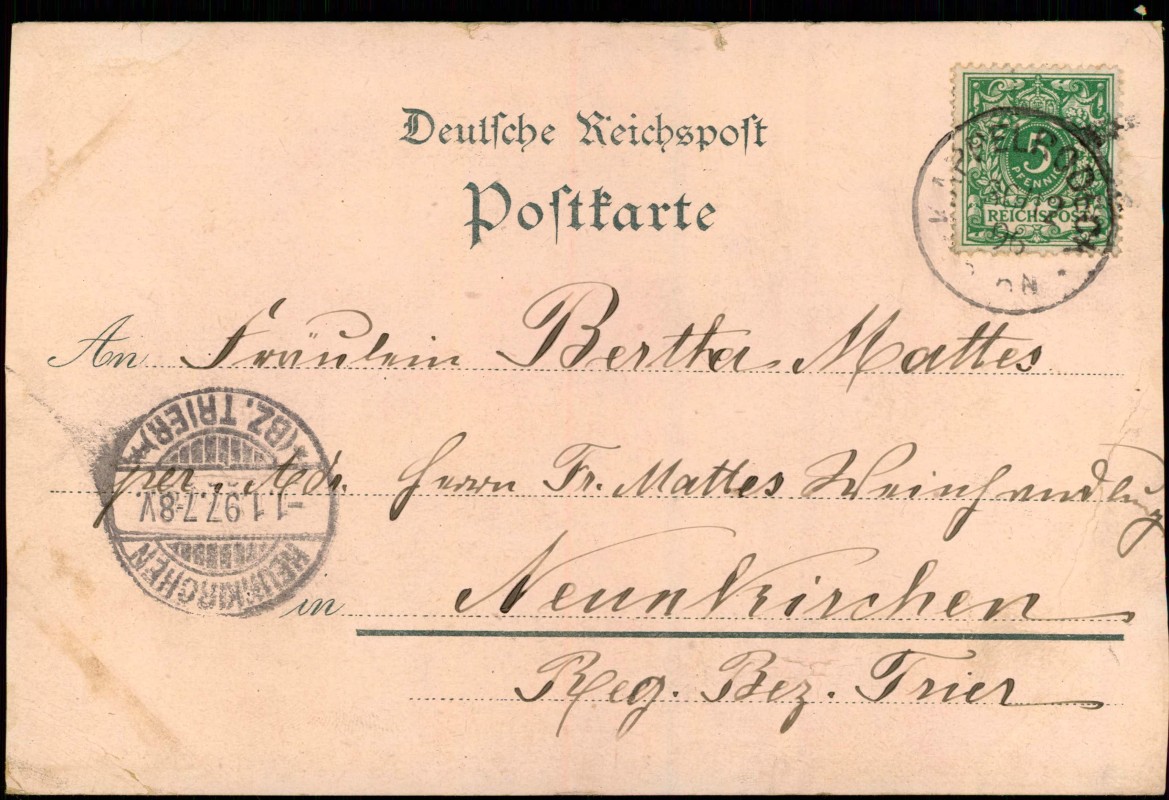 Deutsche Reichspost
Postkarte
5
PFENNIG
REICHSPOST
KAPPELRODECK
96
An Fräulein Bertha Mattes
per Adr. Herrn Fr. Mattes Weinhandlung
in Neunkirchen
Reg. Bez. Trier
NEUNKIRCHEN
-1.1.97.7-8V.
(BZ. TRIER)